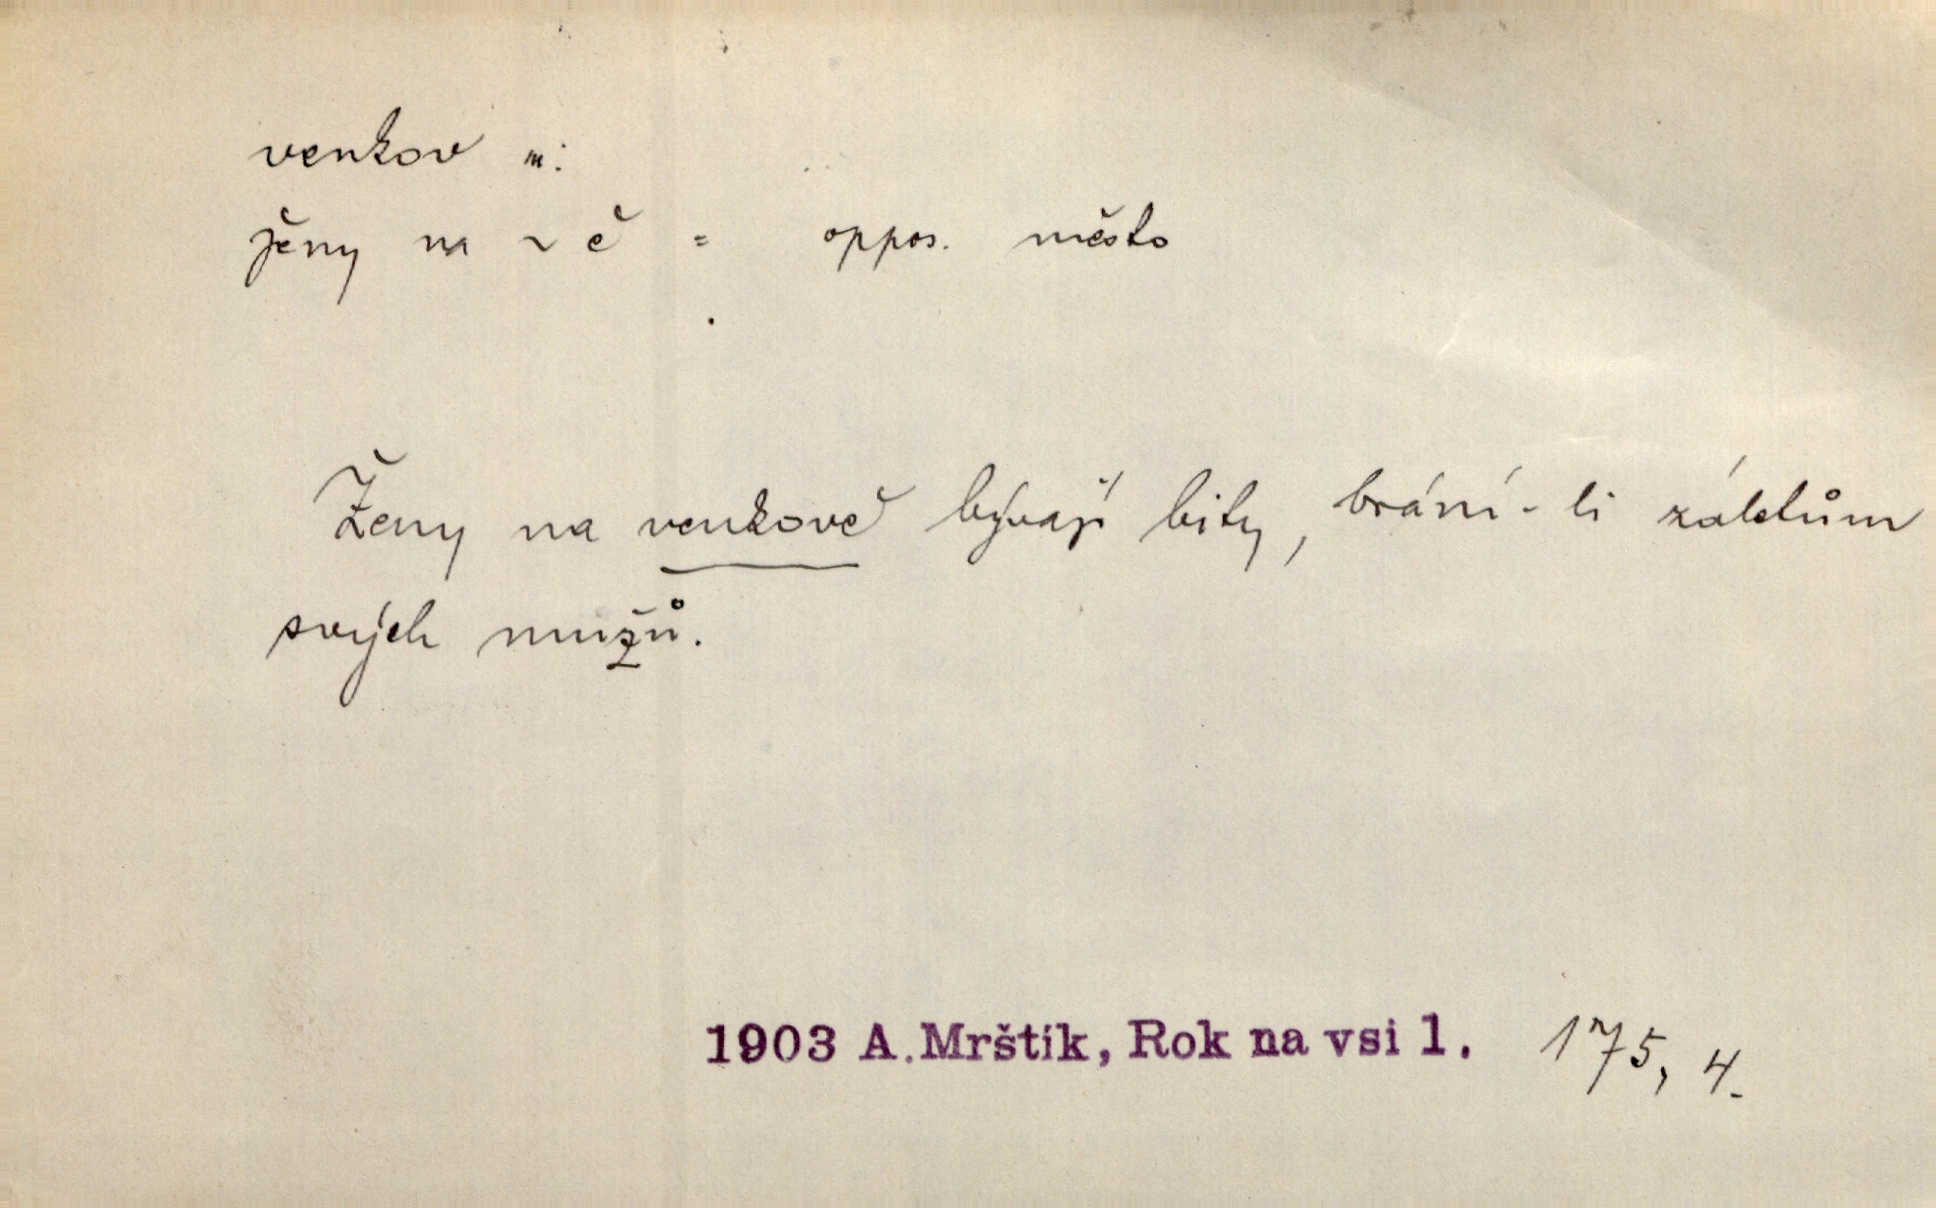 venkov m:
ženy na ~ě = oppos. město
Ženy na venkově bývají bity, brání-li záletům
svých mužů.
1903 A. Mrštík, Rok na vsi 1. 175, 4.